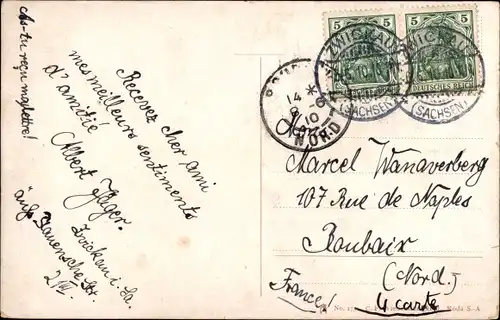 As-tu reçu ma lettre!
Recevez cher ami
mes meilleurs sentiments
d'amitié
Albert Jäger.
Zwickau i. Sa.
äuß.
2 III
5
5
5
5
ZWICKAU
ZWICKAU
DEUTSCHES REICH
(SACHSEN)
(SACHSEN)
14
10
NORD
Marcel Wanaverberg
107 Rue de Naples
Roubaix
(Nord.)
France!
4 carte
No.
Roda S.-A